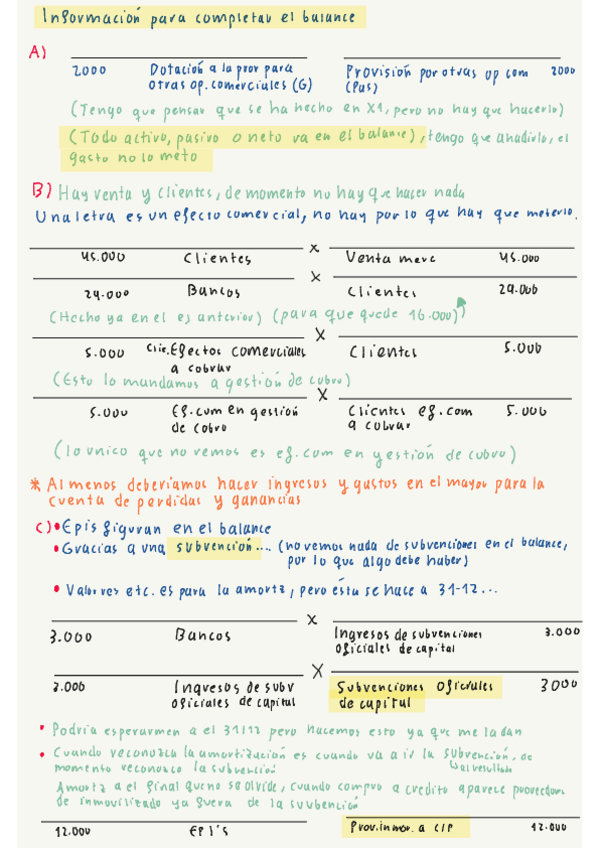 Información para completar el balance
A)
2000 Dotación a la prov para Provisión por otras op com 2000
otras op. comerciales (G) (Pas)
(Tengo que pensar que se ha hecho en X1, pero no hay que hacerlo)
(Todo activo, pasivo o neto va en el balance), tengo que añadirlo, el
gasto no lo meto
B) Hay venta y clientes, de momento no hay que hacer nada
Una letra es un efecto comercial, no hay por lo que hay que meterlo.
x
45.000 Clientes Venta merc 45.000
x
29.000 Bancos Clientes 29.000
(Hecho ya en el es anterior) (para que quede 16.000)
x
5.000 Clie. Efectos comerciales Clientes 5.000
a cobrar
(Esto lo mandamos a gestión de cobro)
x
5.000 Ef. com en gestión Clientes ef. com 5.000
de cobro a cobrar
(lo unico que no vemos es ef. com en gestión de cobro)
* Al menos deberíamos hacer ingresos y gastos en el mayor para la
cuenta de perdidas y ganancias
C) • Epis figuran en el balance
• Gracias a una subvención.... (no vemos nada de subvenciones en el balance,
por lo que algo debe haber)
• Valores etc. es para la amortz, pero ésta se hace a 31-12...
x
3.000 Bancos Ingresos de subvenciones 3.000
oficiales de capital
x
3.000 Ingresos de subv Subvenciones oficiales 3000
oficiales de capital de capital
• Podría esperarmen a el 31/12 pero hacemos esto ya que me la dan
• Cuando reconozca la amortización es cuando va a ir la subvención, de
momento reconozco la subvención al resultado
Amortz a el final que no se olvide, cuando compro a credito aparece proveedores
de inmovilizado ya fuera de la subvención
12.000 EPI's Prov. inmov. a C/P 12.000